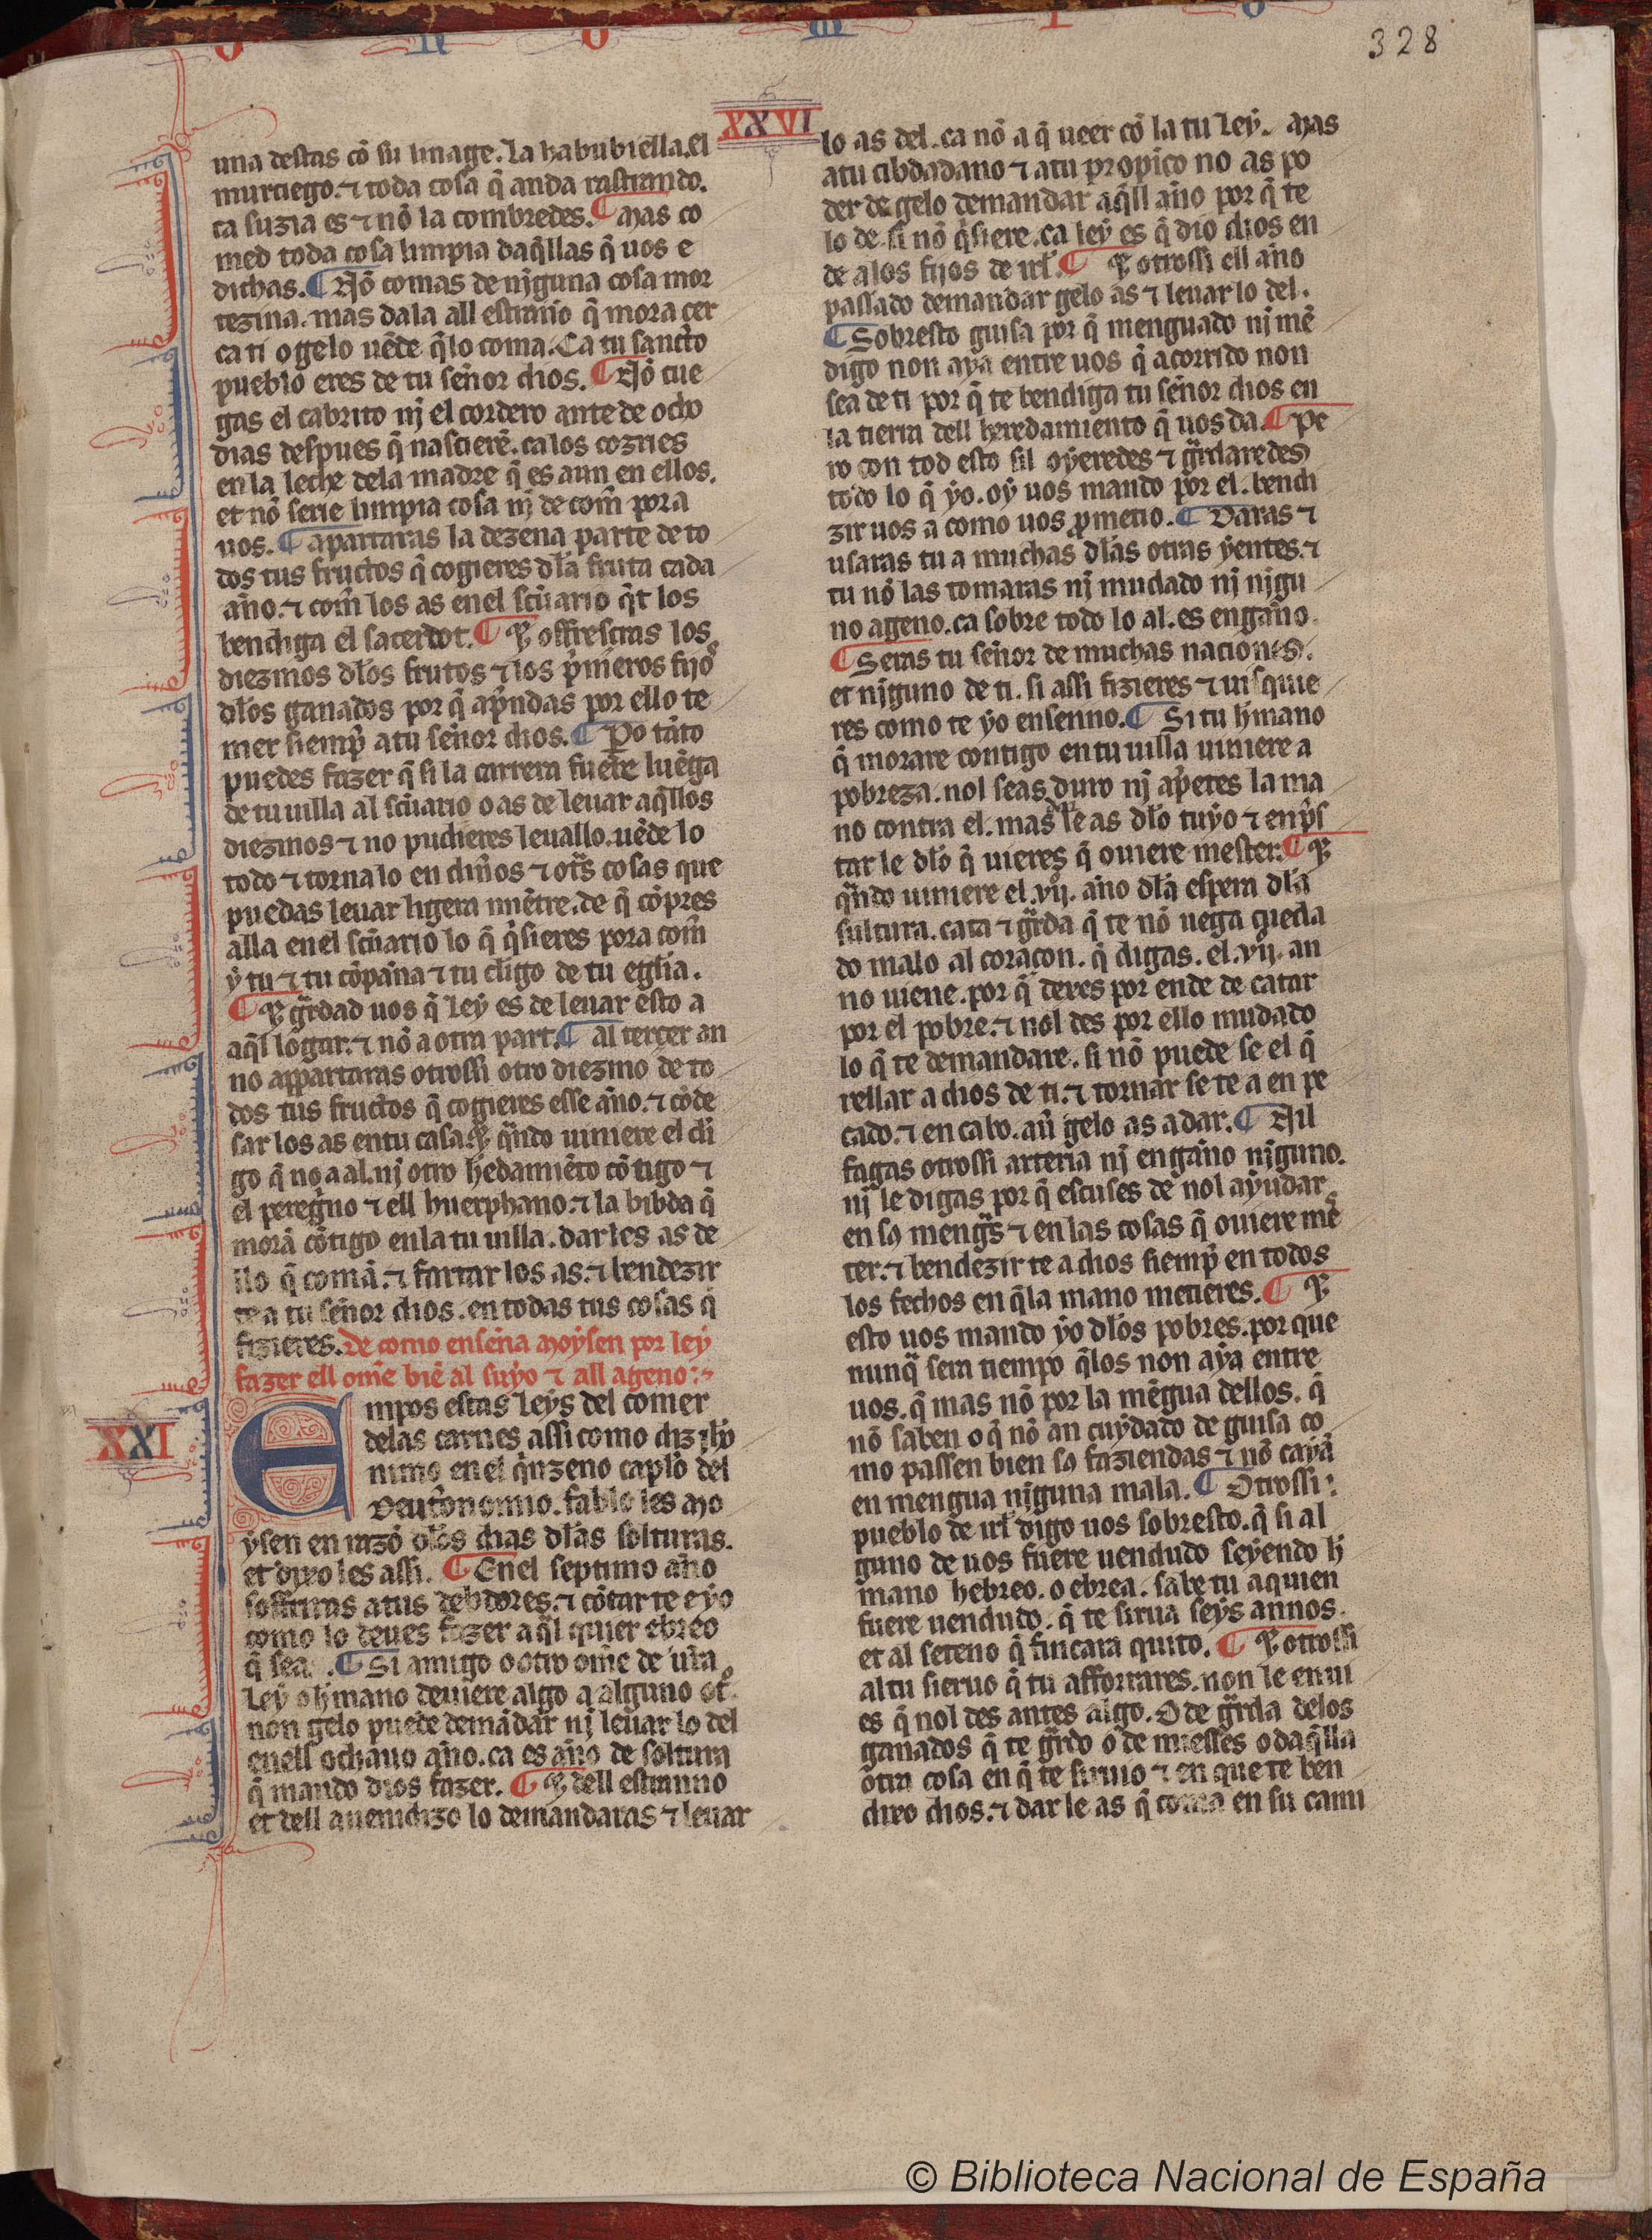 328
XXVI
una destas cõ su linage. La habubiella. el
murciego. ⁊ toda cosa q̃ anda rastrando.
ca suzia es ⁊ nõ la combredes. ¶ Mas co
med toda cosa limpia daq̃llas q̃ uos e
dichas. ¶ Nõ comas de nj̃guna cosa mor
tezina. mas dala all estranno q̃ mora cer
ca ti o gelo uẽde q̃lo coma. Ca tu sancto
pueblo eres de tu señor dios. ¶ Nõ cue
gas el cabrito nj el cordero ante de ocho
dias despues q̃ nasciere. ca los cozries
en la leche dela madre q̃ es aun en ellos.
et nõ serie limpia cosa nj de com̃ pora
uos. ¶ apartaras la dezena parte de to
dos tus fructos q̃ cogieres dl̃a fruta cada
año. ⁊ com̃ los as enel scũario q̃t los
bendiga el sacerdot. ¶ ⁊ offresçras los
diezmos dl̃os frutos ⁊ los p̃meros fijos
dl̃os ganados por q̃ ap̃ndas por ello te
mer siemp̃ atu señor dios. ¶ Po tãto
puedes fazer q̃ si la carrera fuere luẽga
de tu uilla al scũario o as de leuar aq̃llos
diezmos ⁊ no pudieres leuallo. uẽde lo
todo ⁊ torna lo en dinos ⁊ otr̃s cosas que
puedas leuar ligera miẽtre. de q̃ cõpres
alla enel scũario lo q̃ q̃sieres pora com̃
ẏ tu ⁊ tu cõpaña ⁊ tu cligo de tu eglia.
¶ ⁊ gr̃dad uos q̃ leẏ es de leuar esto a
aq̃l logar. ⁊ nõ a otra part. ¶ al tercer an
no appartaras otrossi otro diezmo de to
dos tus fructos q̃ cogieres esse año. ⁊ cõde
sar los as entu casa. ⁊ q̃ndo uiniere el cli
go q̃ no a al. nj otro h̃edamiẽto cõtigo ⁊
el peregno ⁊ ell huerphano. ⁊ la bibda q̃
morã cõtigo enla tu uilla. dar les as de
llo q̃ comã. ⁊ fartar los as. ⁊ bendezir
te a tu señor dios. en todas tus cosas q̃
fizieres. De como enseña Moẏsen por leẏ
fazer ell om̃e biẽ al suẏo ⁊ all ageno:~
XXI
Empos estas leẏs del comer
delas carnes assi como diz ih̃o
nimo enel q̃nzeno caplo del
Deut̃onomio. fablo les Mo
ẏsen en razõ dl̃os dias dl̃as solturas.
et dixo les assi. ¶ Enel septimo año
soltaras atus debdores. ⁊ cõtar te e ẏo
como lo deues fazer a q̃l quier ebreo
q̃ sea. ¶ Si amigo o otro om̃e de ur̃a
leẏ o h̃mano deuiere algo a alguno ot̃
non gelo puede demãdar nj leuar lo del
enell ochauo año. ca es año de soltura
q̃ mando dios fazer. ¶ ⁊ dell estranno
et dell auenidizo lo demandaras ⁊ leuar
lo as del. ca nõ a q̃ ueer cõ la tu leẏ. Mas
atu cibdadano ⁊ atu propico no as po
der de gelo demandar aq̃ll año por q̃ te
lo de. si nõ q̃siere. ca leẏ es q̃ dio dios en
de alos fijos de irl̃. ¶ ⁊ otrossi ell año
passado demandar gelo as ⁊ leuar lo del.
¶ Sobresto guisa por q̃ menguado nj mẽ
digo non aẏa entre uos q̃ acorrido non
sea de ti por q̃ te bendiga tu señor dios en
la tierra dell heredamiento q̃ uos da. ¶ Pe
ro con tod esto sil oẏeredes ⁊ gr̃daredes
todo lo q̃ ẏo. oẏ uos mando por el. bendi
zir uos a como uos p̃metio. ¶ Daras ⁊
usaras tu a muchas dl̃as otras ẏentes. ⁊
tu nõ las tomaras nj mudado nj nj̃gu
no ageno. ca sobre todo lo al. es engaño.
¶ Seras tu señor de muchas naciones.
et nj̃guno de ti. si assi fizieres ⁊ uisquie
res como te ẏo ensenno. ¶ Si tu h̃mano
q̃ morare contigo en tu uilla uiniere a
pobreza. nol seas duro nj ap̃etes la ma
no contra el. mas dar le as dl̃o tuẏo ⁊ enp̃s
tar le dl̃o q̃ uieres q̃ ouiere mester. ¶ ⁊
q̃ndo uiniere el .vij. año dl̃a espera dl̃a
sultura. cata ⁊ gr̃da q̃ te nõ uega cueda
do malo al coraçon. q̃ digas. el .vij. an
no uiene. por q̃ deues por ende de catar
por el pobre. ⁊ nol des por ello mudado
lo q̃ te demandare. si nõ puede se el q̃
rellar a dios de ti. ⁊ tornar se te a en pe
cado. ⁊ en cabo. aũ gelo as a dar. ¶ Nil
fagas otrossi arteria nj engaño nj̃guno.
nj le digas por q̃ escuses de nol aẏudar
en so mengs̃ ⁊ en las cosas q̃ ouiere mẽs
ter. ⁊ bendezir te a dios siemp̃ en todos
los fechos en q̃la mano metieres. ¶ ⁊
esto uos mando ẏo dl̃os pobres. por que
nunq̃ sera tiempo q̃los non aẏa entre
uos. q̃ mas nõ por la mẽgua dellos. q̃
nõ saben o q̃ nõ an cuẏdado de guisa co
mo passen bien so faziendas ⁊ nõ caẏã
en mengua nj̃guna mala. ¶ Otrossi:
pueblo de irl̃ digo uos sobresto. q̃ si al
guno de uos fuere uendudo seẏendo h̃
mano hebreo. o ebrea. sabe tu aquien
fuere uendudo. q̃ te sirua seẏs annos.
et al seteno q̃ fincara quito. ¶ ⁊ otrossi
al tu sieruo q̃ tu afforrares. non le enui
es q̃ nol des antes algo. O de gr̃da delos
ganados q̃ te gr̃do o de miesses o daq̃lla
otra cosa en q̃ te siruio ⁊ en que te ben
dixo dios. ⁊ dar le as q̃ coma en su cami
© Biblioteca Nacional de España